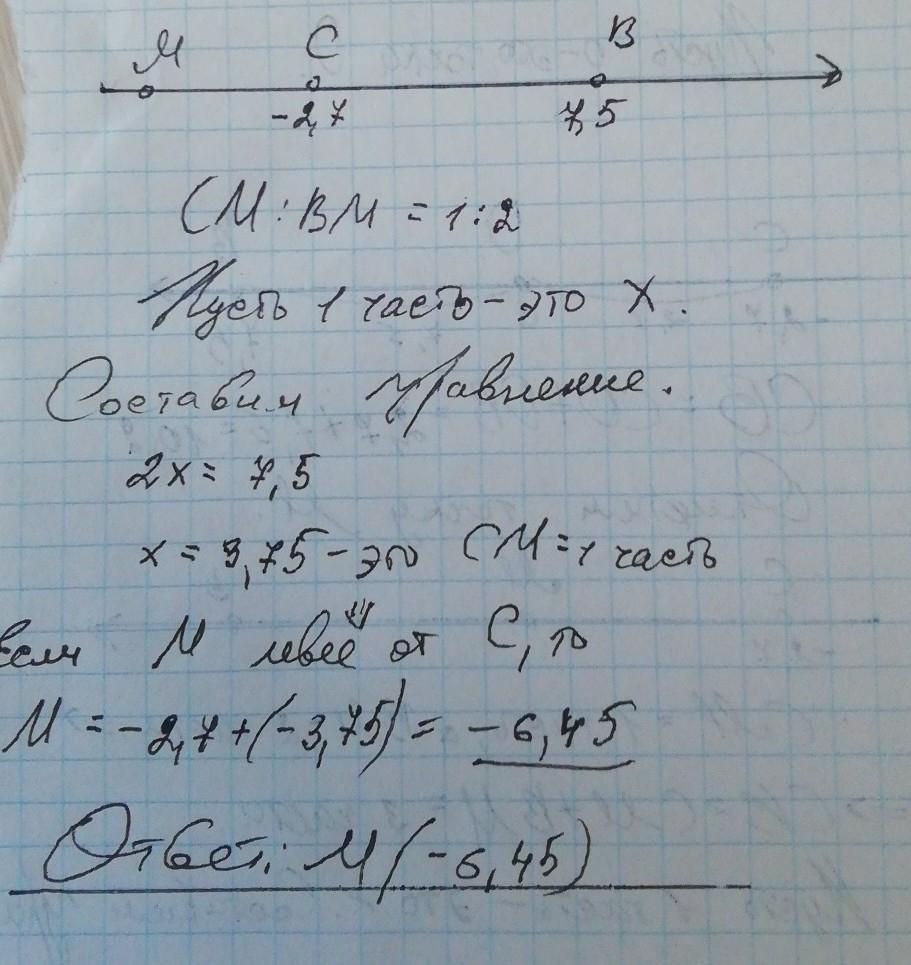 М С В
-2,7 7,5
СМ : ВМ = 1 : 2
Пусть 1 часть - это х.
Составим уравнение.
2х = 7,5
х = 3,75 - это СМ = 1 часть
если М левее от С, то
М = -2,7 + (-3,75) = -6,45
Ответ: М (-6,45)